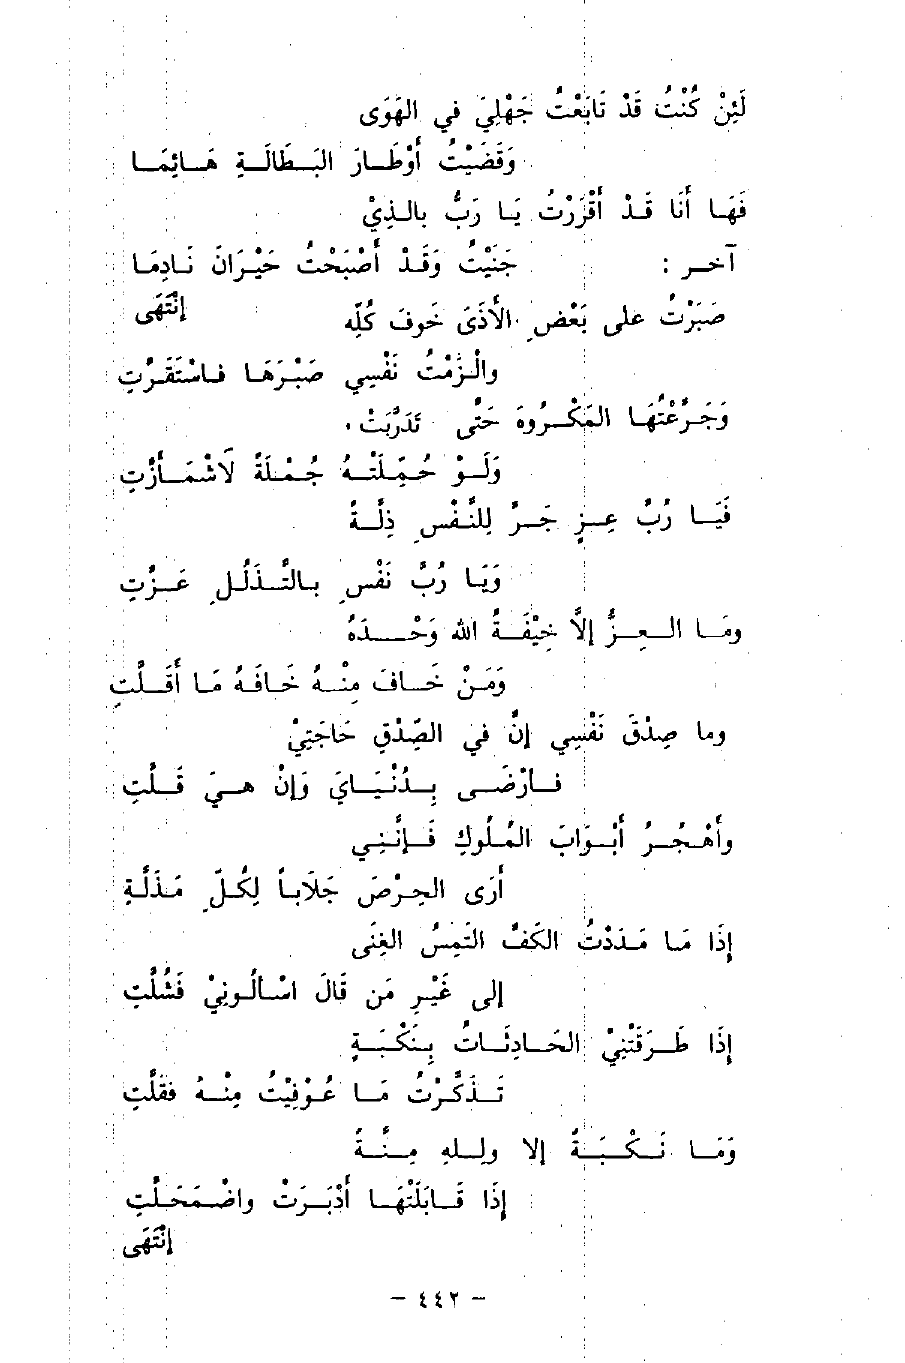 لَئِنْ كُنْتُ قَدْ تَابَعْتُ جَهْلِيَ في الهَوَى
وَقَضَيْتُ أَوْطَارَ البَطَالَةِ هَائِمَا
فَهَا أَنَا قَدْ أَقْرَرْتُ يَا رَبُّ بالذِيْ
جَنَيْتُ وَقَدْ أَصْبَحْتُ حَيْرَانَ نَادِمَا
إنْتَهَى
آخر :
صَبَرْتُ على بَعْضِ الأَذَى خَوفَ كُلّهِ
والْزَمْتُ نَفْسِي صَبْرَهَا فاسْتَقَرَّتِ
وَجَرَّعْتُهَا المَكْرُوهَ حَتَّى تَدَرَّبَتْ
وَلَوْ حُمِّلَتْهُ جُمْلَةً لَاشْمَأَزَّتِ
فَيَا رُبَّ عِزٍ جَرَّ لِلنَّفْسِ ذِلَّةً
وَيَا رُبَّ نَفْسٍ بالتَّذَلُّلِ عَزَّتِ
ومَا العِزُّ إلاَّ خِيْفَةُ الله وَحْدَهُ
وَمَنْ خَافَ مِنْهُ خَافَهُ مَا أَقَلَّتِ
وما صِدْقَ نَفْسِي إنَّ في الصِّدْقِ حَاجَتِيْ
فأرْضَى بِدُنْيَايَ وَإنْ هيَ قَلَّتِ
وأَهْجُرُ أَبْوَابَ المُلُوكِ فَإنَّنِي
أَرَى الحِرْصَ جَلَاباً لِكُلِّ مَذَلَّةِ
إذَا مَا مَدَدْتُ الكَفَّ التَمِسُ الغِنَى
إلى غَيْرِ مَن قَالَ اسْألُونِيْ فَشُلَّتِ
إذَا طَرَقَتْنِيْ الحَادِثَاتُ بِنَكْبَةٍ
تَذَكَّرْتُ مَا عُوْفِيْتُ مِنْهُ فقلَّتِ
وَمَا نَكْبَةٌ إلا ولِلهِ مِنَّةٌ
إذَا قَابَلَتْهَا أَدْبَرَتْ واضْمَحَلَّتِ
إنْتَهَى
- ٤٤٢ -